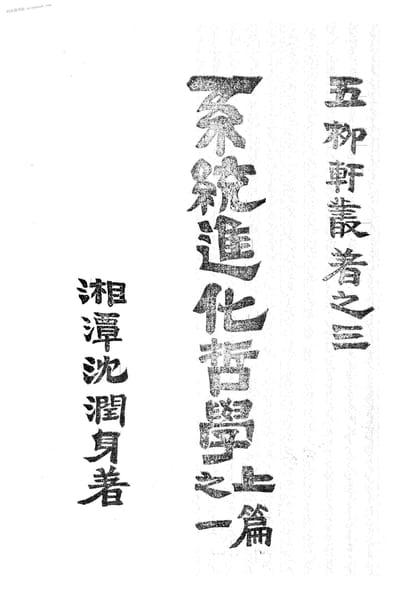 五柳軒叢著之三
系統進化哲學上篇之一
湘潭沈潤身著